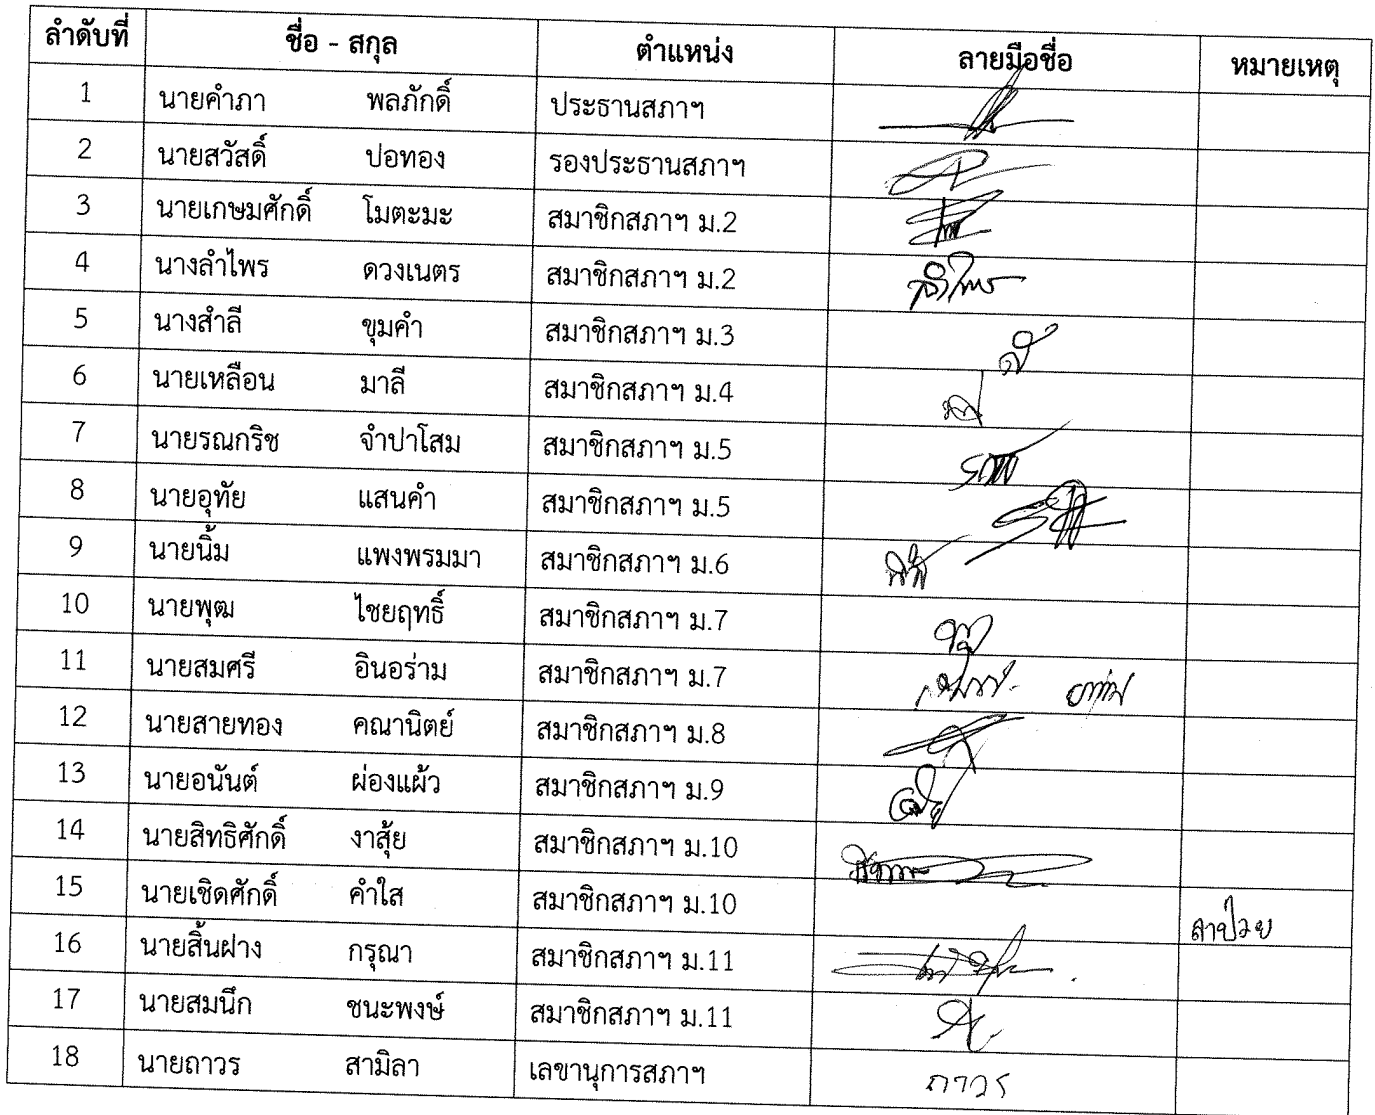 ลำดับที่ ชื่อ - สกุล ตำแหน่ง ลายมือชื่อ หมายเหตุ
1 นายคำภา พลภักดิ์ ประธานสภาฯ
2 นายสวัสดิ์ ปอทอง รองประธานสภาฯ
3 นายเกษมศักดิ์ โมตะมะ สมาชิกสภาฯ ม.2
4 นางลำไพร ดวงเนตร สมาชิกสภาฯ ม.2 ลำไพร
5 นางสำลี ขุมคำ สมาชิกสภาฯ ม.3
6 นายเหลือน มาลี สมาชิกสภาฯ ม.4
7 นายรณกริช จำปาโสม สมาชิกสภาฯ ม.5
8 นายอุทัย แสนคำ สมาชิกสภาฯ ม.5
9 นายนิ้ม แพงพรมมา สมาชิกสภาฯ ม.6
10 นายพุฒ ไชยฤทธิ์ สมาชิกสภาฯ ม.7
11 นายสมศรี อินอร่าม สมาชิกสภาฯ ม.7
12 นายสายทอง คณานิตย์ สมาชิกสภาฯ ม.8
13 นายอนันต์ ผ่องแผ้ว สมาชิกสภาฯ ม.9
14 นายสิทธิศักดิ์ งาสุ้ย สมาชิกสภาฯ ม.10
15 นายเชิดศักดิ์ คำใส สมาชิกสภาฯ ม.10 ลาป่วย
16 นายสิ้นฝาง กรุณา สมาชิกสภาฯ ม.11
17 นายสมนึก ชนะพงษ์ สมาชิกสภาฯ ม.11
18 นายถาวร สามิลา เลขานุการสภาฯ ถาวร